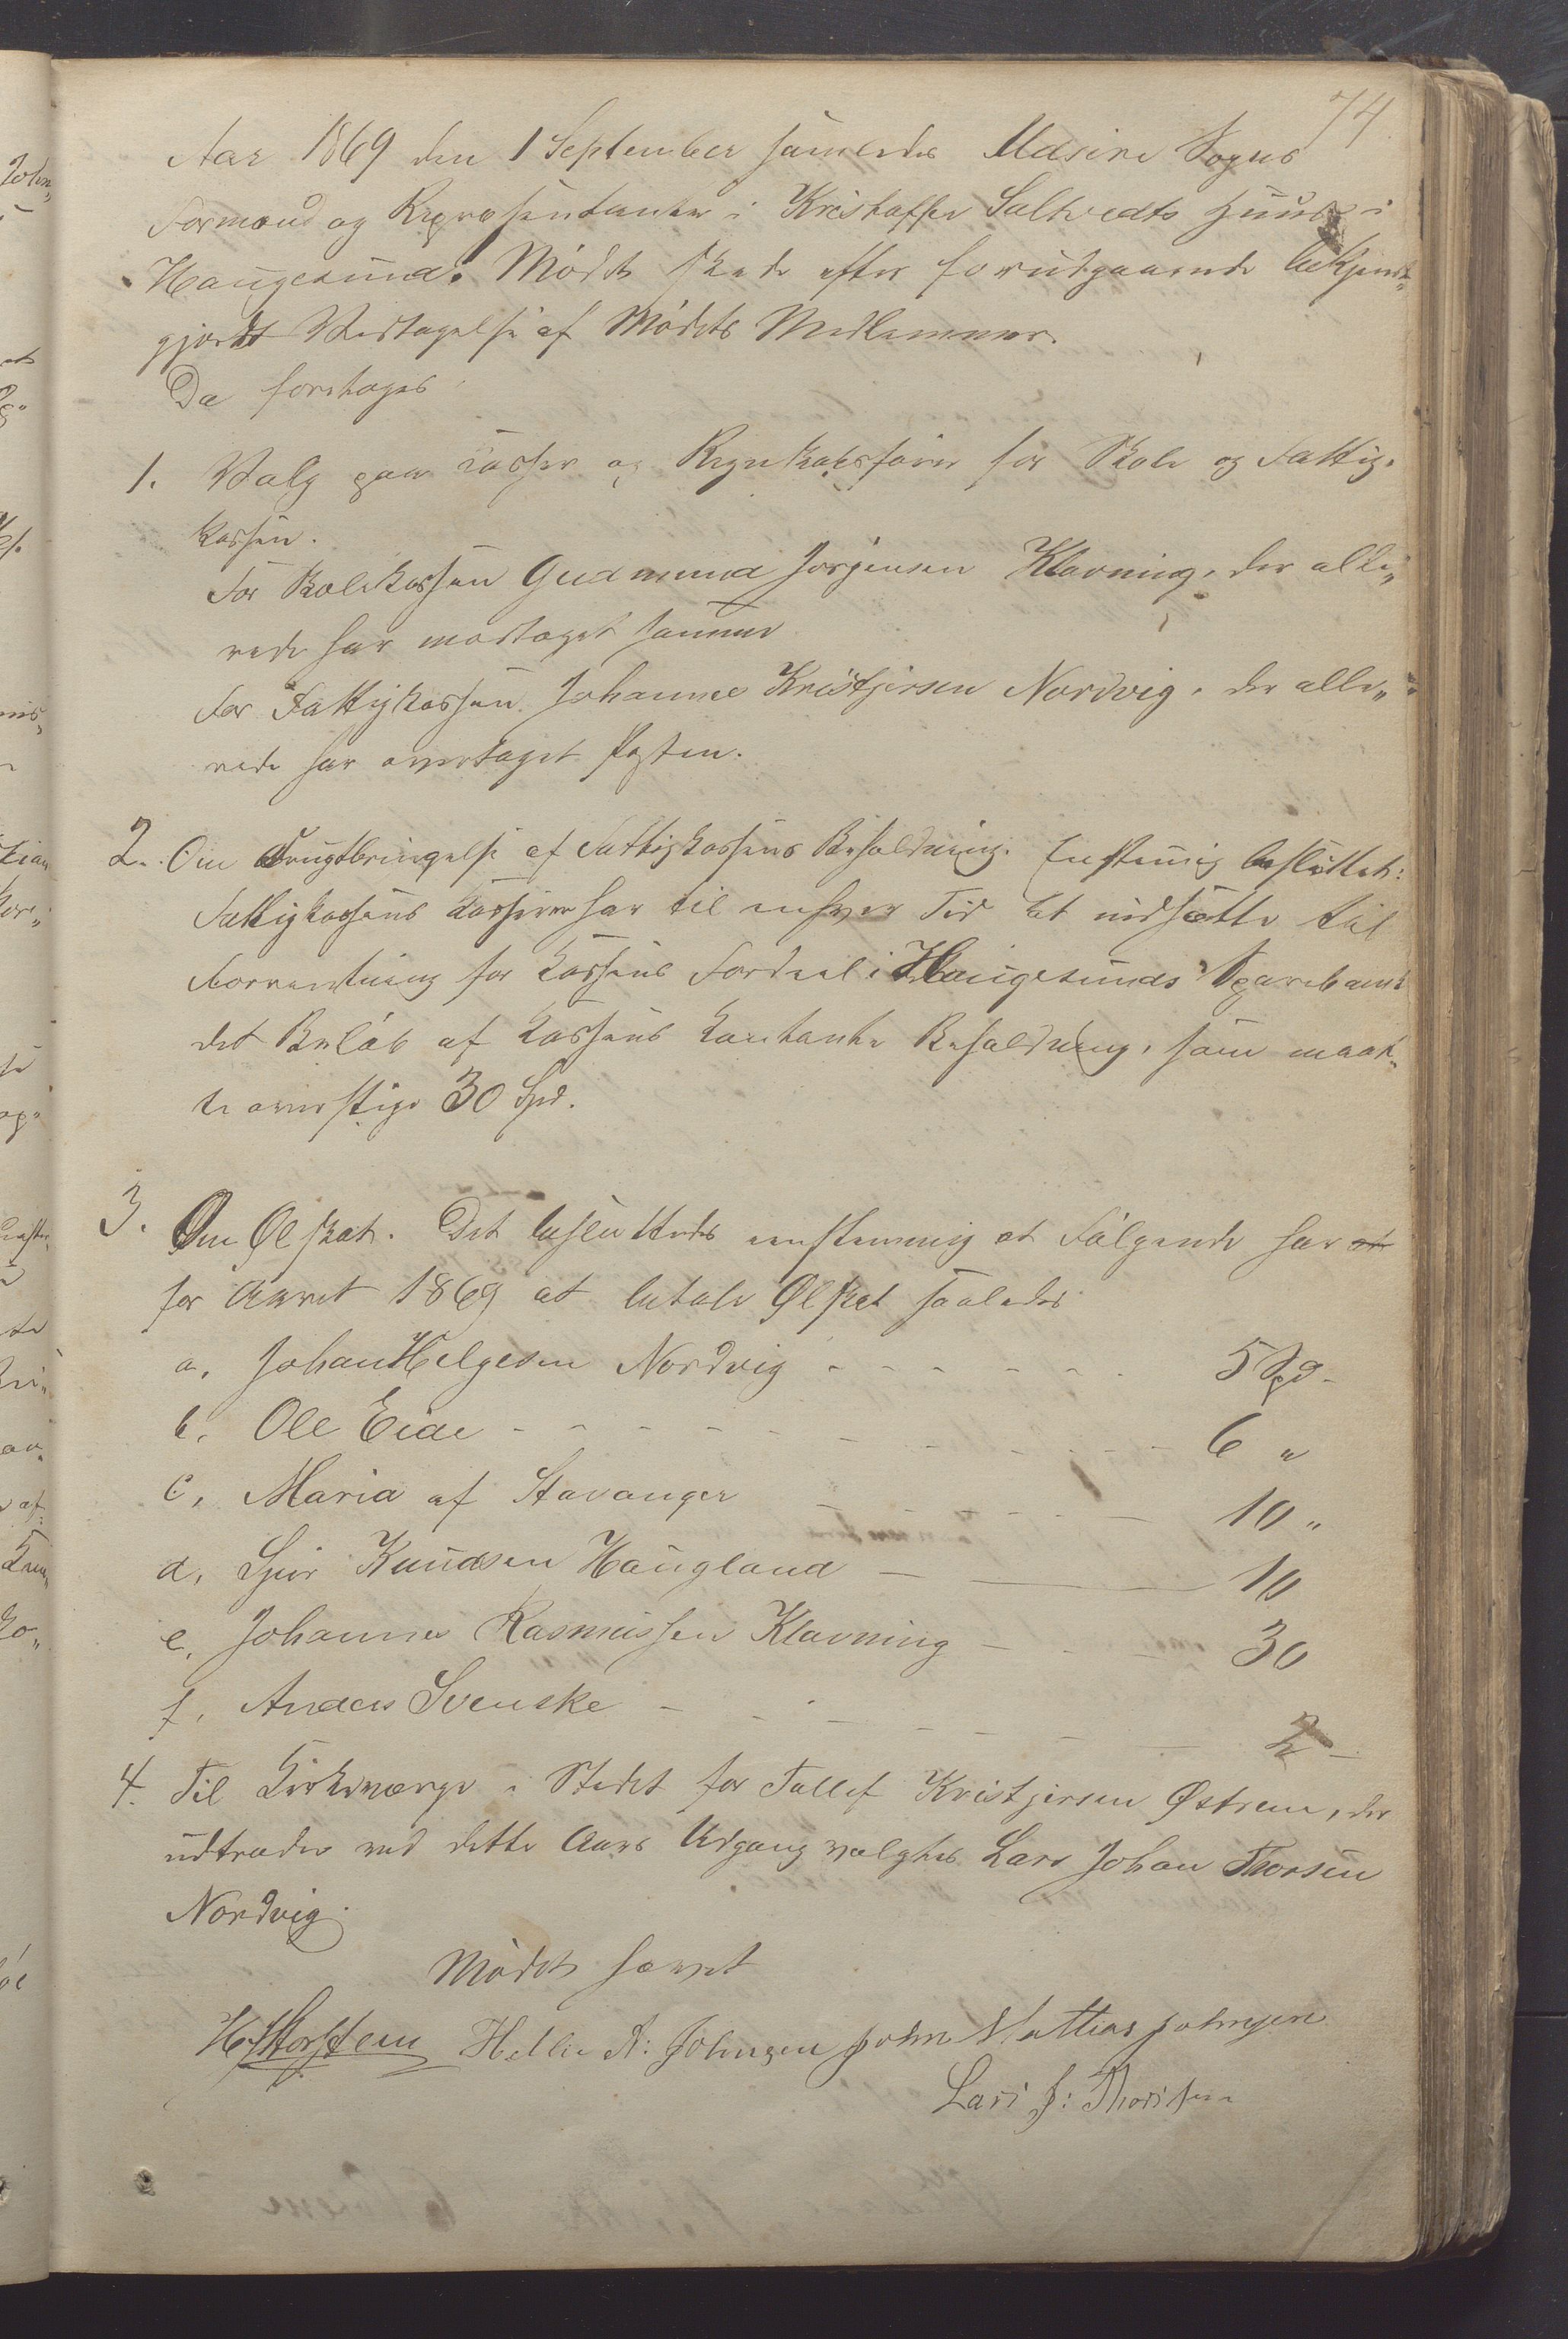 74
Aar 1869 den 1 September samledes Udsire Sogns
Formænd og Repræsentanter i Kristoffer Saltvedts Huus i
Haugesund. Mødet skede efter forudgaaende bekjendt„
gjordt Vedtagelse af Mødets Medlemmer.
Da foretoges
1. Valg paa Casser og Regnskabsfører for Skole og Fattig„
kassen.
For Skolekassen Gudmund Jørgensen Klovning, der alle„
rede har modtaget samme
For Fattigkassen Johannes Kristjersen Nordvig, der alle„
rede har overtaget Posten.
2. Om Frugtbringelse af Fattigkassens Beholdning. Enstemig besluttet:
Fattigkassens Kasserer har til enhver Tid at indsætte til
Forrentning for Kassens Fordeel i Haugesunds Sparebank
det Beløb af Kassens kontante Beholdning, som maat„
te overstige 30 Spd.
3. Om Ølskat. Det besluttedes eenstemmig at Følgende har at
for Aaret 1869 at betale Ølskat saaledes
a. Johan Helgesen Nordvig - - - - - - 5 Spd -
b. Ole Eide - - - - - - - - - 6 „
c. Maria af Stavanger - - - - 10 „
d. Sjur Knudsen Haugland - - 10
e. Johannes Rasmussen Klovning - - - 30
f. Anders Svenske - - - - - - - 2 -
4. Til Kirkeværge i Stedet for Tollef Kristjersen Østrem, der
udtræder ved dette Aars Udgang valgtes Lars Johan Thorsen
Nordvig.
Mødet hævet
H. Storstein Helli A: Johnsen John Mattias Johnsen
Lars J: Thorsen